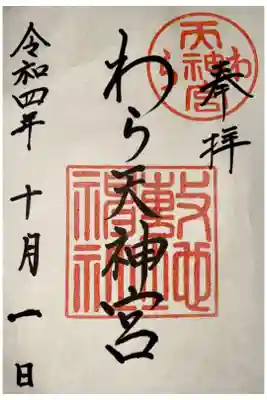 奉拝
天神宮
わら
わら天神宮
敷地神社
令和四年十月一日